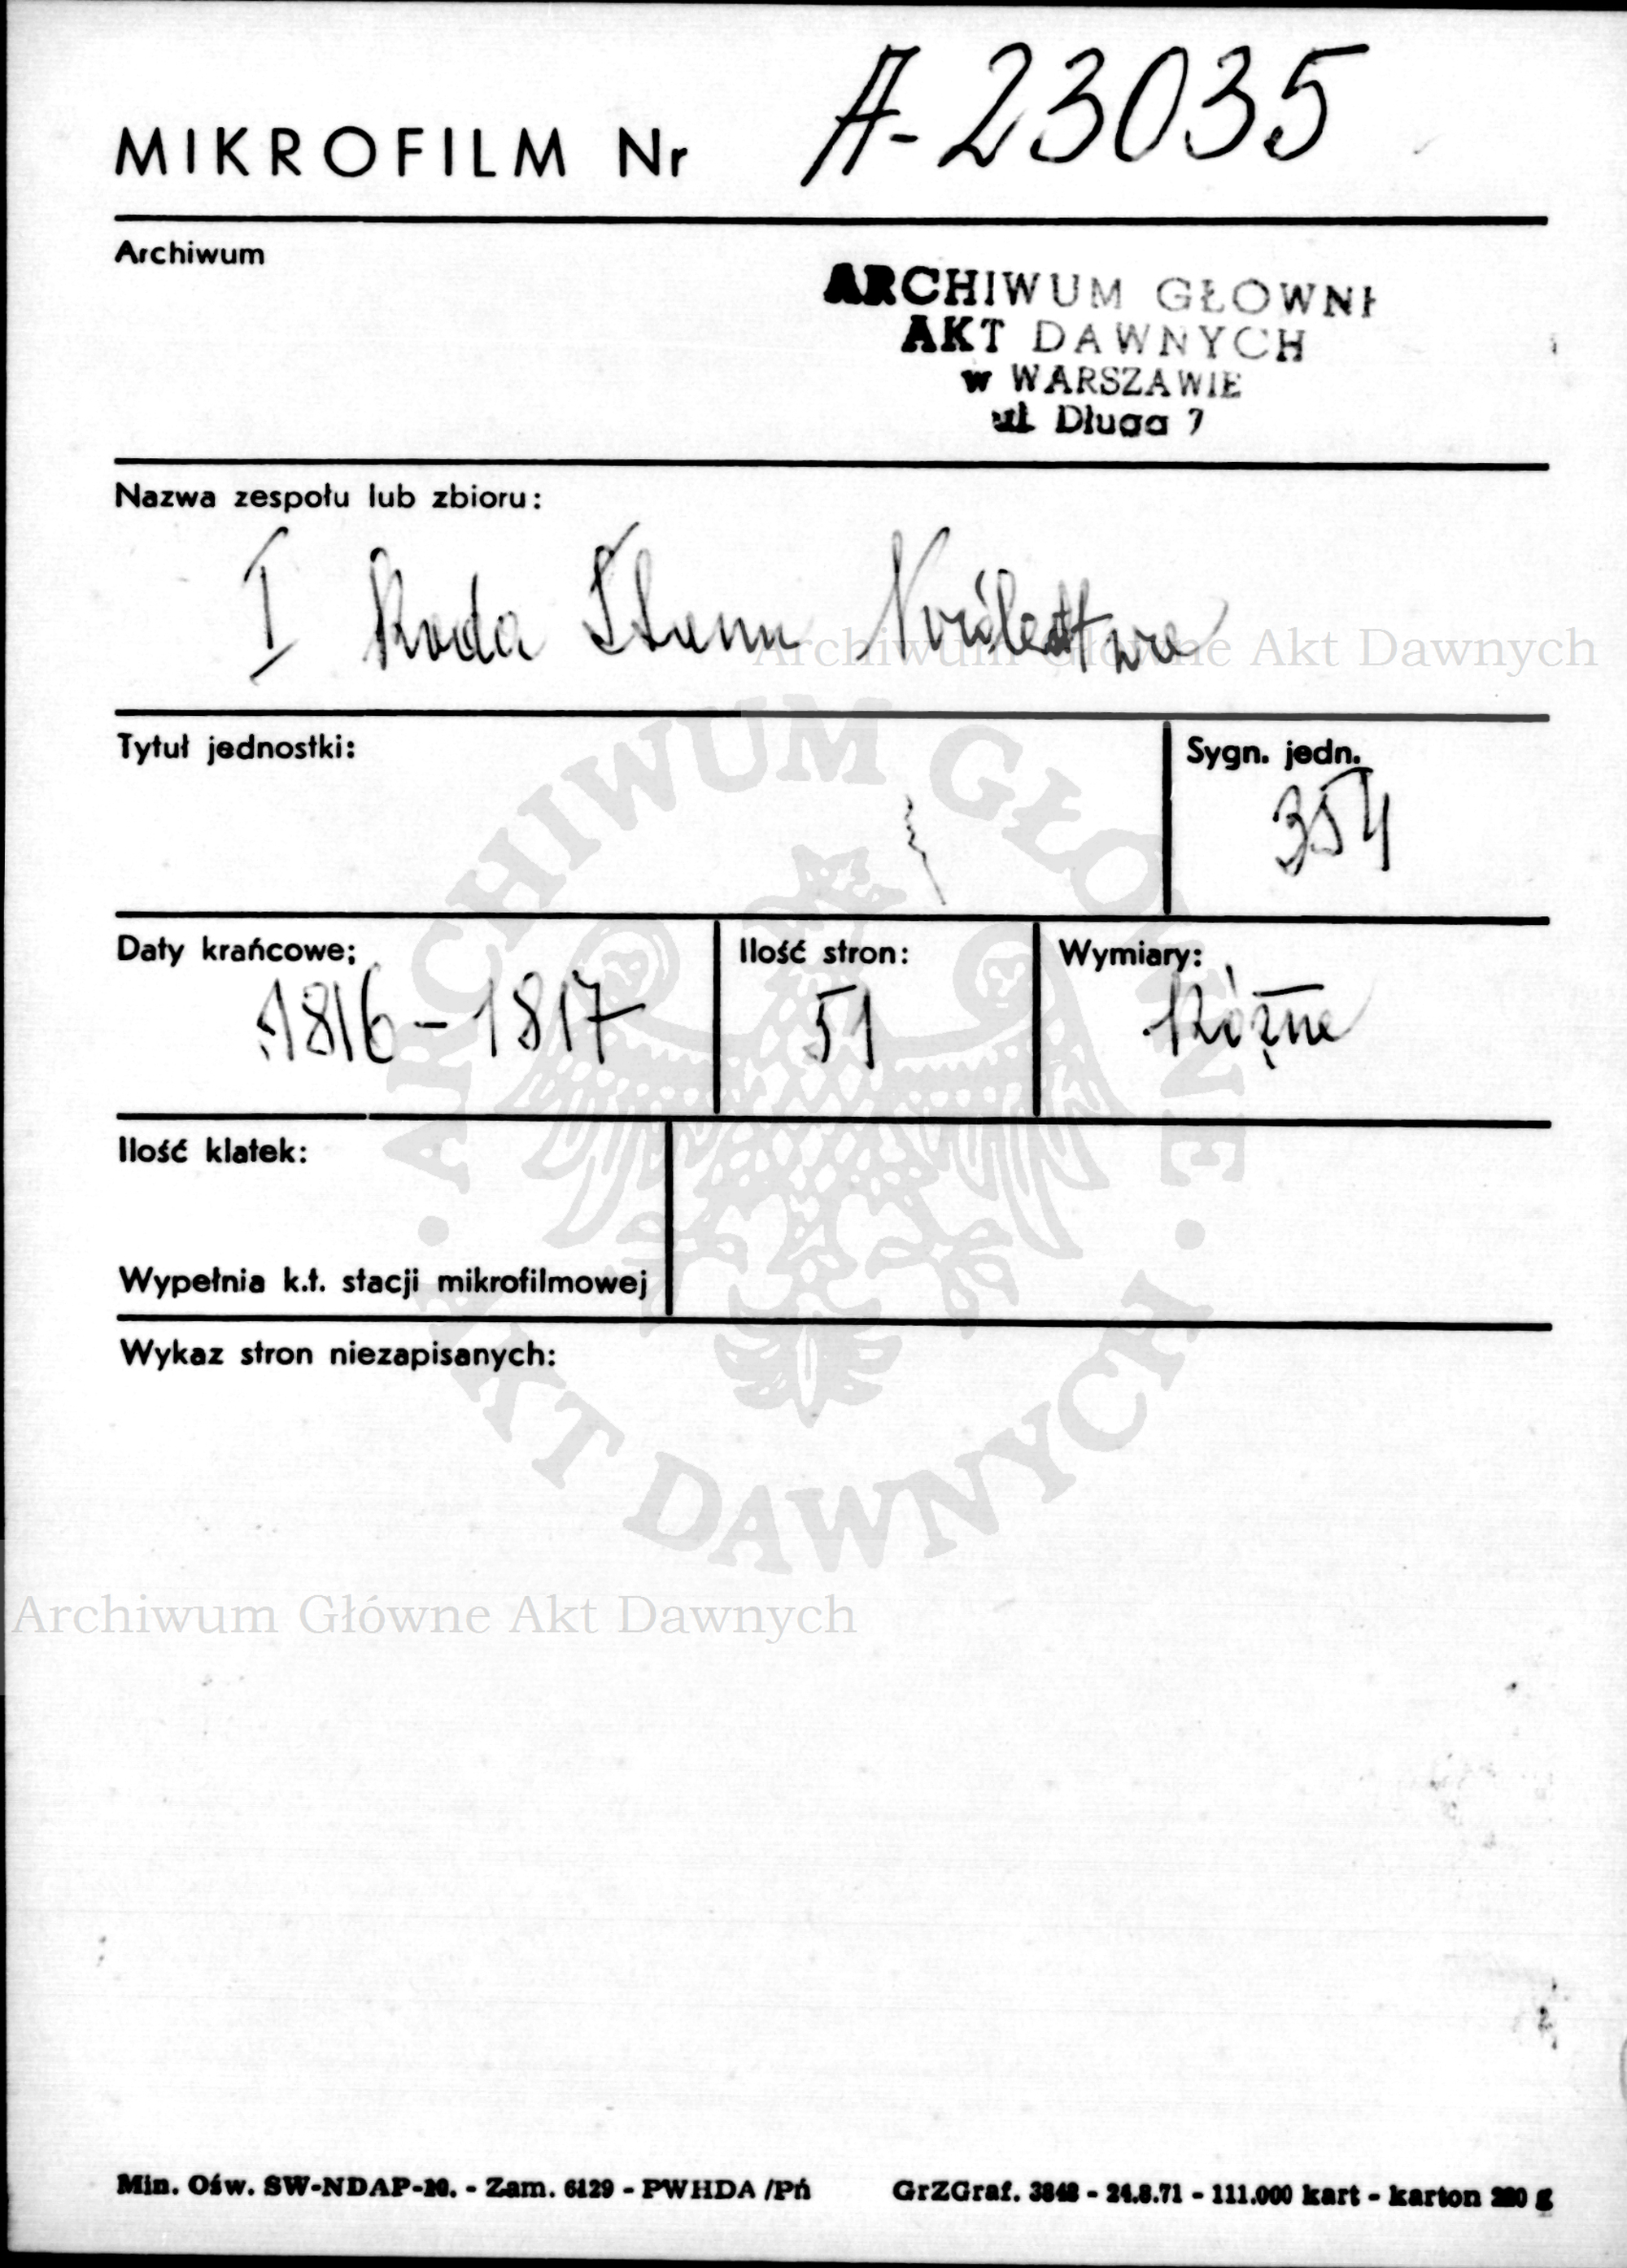 MIKROFILM Nr A-23035
Archiwum
ARCHIWUM GŁOWNE
AKT DAWNYCH
w WARSZAWIE
ul. Długa 7
Nazwa zespołu lub zbioru:
I Rada Stanu Królestwa
Archiwum Główne Akt Dawnych
Tytuł jednostki:
Sygn. jedn.
354
Daty krańcowe:
1816-1817
Ilość stron:
51
Wymiary:
Różne
Ilość klatek:
Wypełnia k.t. stacji mikrofilmowej
Wykaz stron niezapisanych:
ARCHIWUM GŁÓWNE
AKT DAWNYCH
Archiwum Główne Akt Dawnych
Min. Ośw. SW-NDAP-10. - Zam. 6129 - PWHDA /Pń GrZGraf. 3848 - 24.8.71 - 111.000 kart - karton g